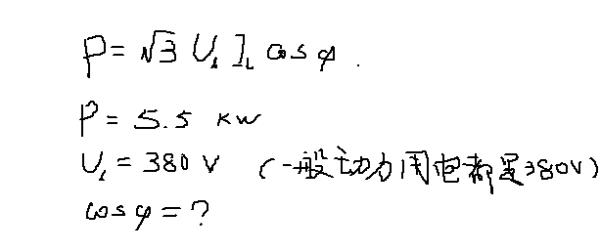 P = √3 U_L I_L cos φ.
P = 5.5 kW
U_L = 380 V (一般动力用电都是380V)
cos φ = ?